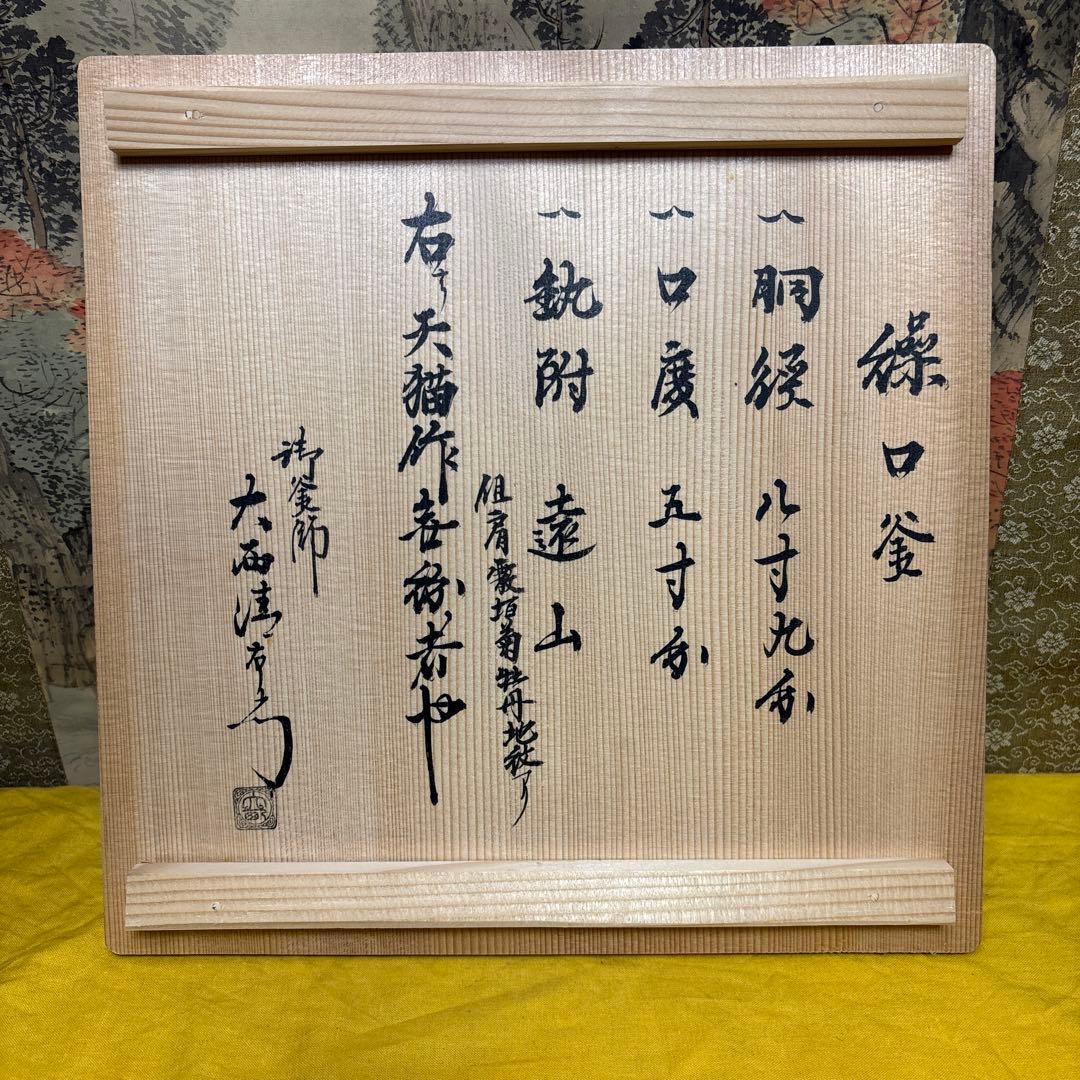 繰口釜
一 胴径 八寸九分
一 口廣 五寸分
一 釻附 遠山
但肩霰垣菊牡丹地紋アリ
右ハ天猫作無紛者也
御釜師
大西清右衛門